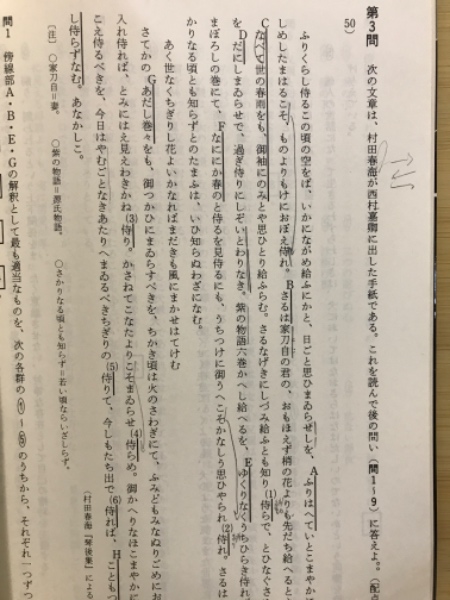 第3問 次の文章は、村田春海が西村嘉卿に出した手紙である。これを読んで後の問い(問1~9)に答えよ。(配点
50)
ふりくらし侍るこの頃の空をば、いかにながめ給ふにかと、日ごと思ひまゐらせしを、Aふりはへていとこまやか
しめしたまはるこそ、ものよりもけにおぼえ侍れ。Bさるは家刀自の君の、おもほえず梢の花よりも先だち給へると
Cなべて世の春雨をも、御袖にのみとや思ひとり給ふらむ。さるなげきにしづみ給ふとも知り(1)侍らで、とひなぐさ
をDだにしまゐらせで、過ぎ侍りにしぞいとわりなき。紫の物語六巻かへし給へるを、Eゆくりなくうちひらき侍れ
まぼろしの巻にて、Fなにか春のと侍るを見侍るにも、うちつけに御うへこそかなしう思ひやられ(2)侍れ。さるは
かりなる頃とも知らずとのたまふは、いひ知らぬわざになむ。
あく世なくちぎりし花よいかなればまだきも風にまかせはてけむ
さてかのGあだし巻々をも、御つかひにまゐらすべきを、ちかき頃は火のさわぎにて、ふみどもみなぬりごめにお
入れ侍れば、とみにはえ見えわきかね(3)侍り。かさねてこなたよりこそまゐらせ(4)侍らめ。御かへりなほこまやかに
こえ侍るべきを、今日はやむごとなきあたりへまゐるべきちぎりの(5)侍りて、今しもたち出で(6)侍れば、Hこともつ
し侍らずなむ。あなかしこ。
(村田春海『琴後集』による
〔注〕 ○家刀自=妻。 ○紫の物語=源氏物語。 ○さかりなる頃とも知らず=若い頃ならいざしらず。
問1 傍線部A・B・E・Gの解釈として最も適当なものを、次の各群の①~⑤のうちから、それぞれ一つずつ